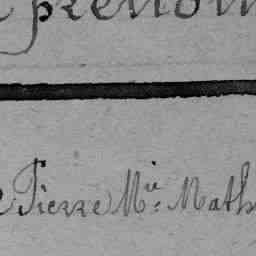 prénom
Pierre M.ie Math